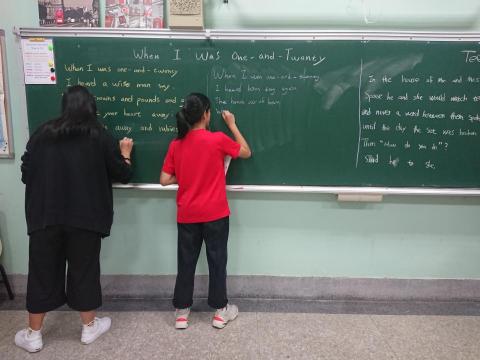 When I Was One-and-Twenty
When I was one-and-twenty
I heard a wise man say,
crowns and pounds and
your heart away
away and rubies
When I was one-and-twenty
I heard him say again
The
Tee
In the house of Mr and Mrs
Spouse he and she would watch te
and never a word between them spok
until the day the set was broken
Then "How do you do"?
Said he to she